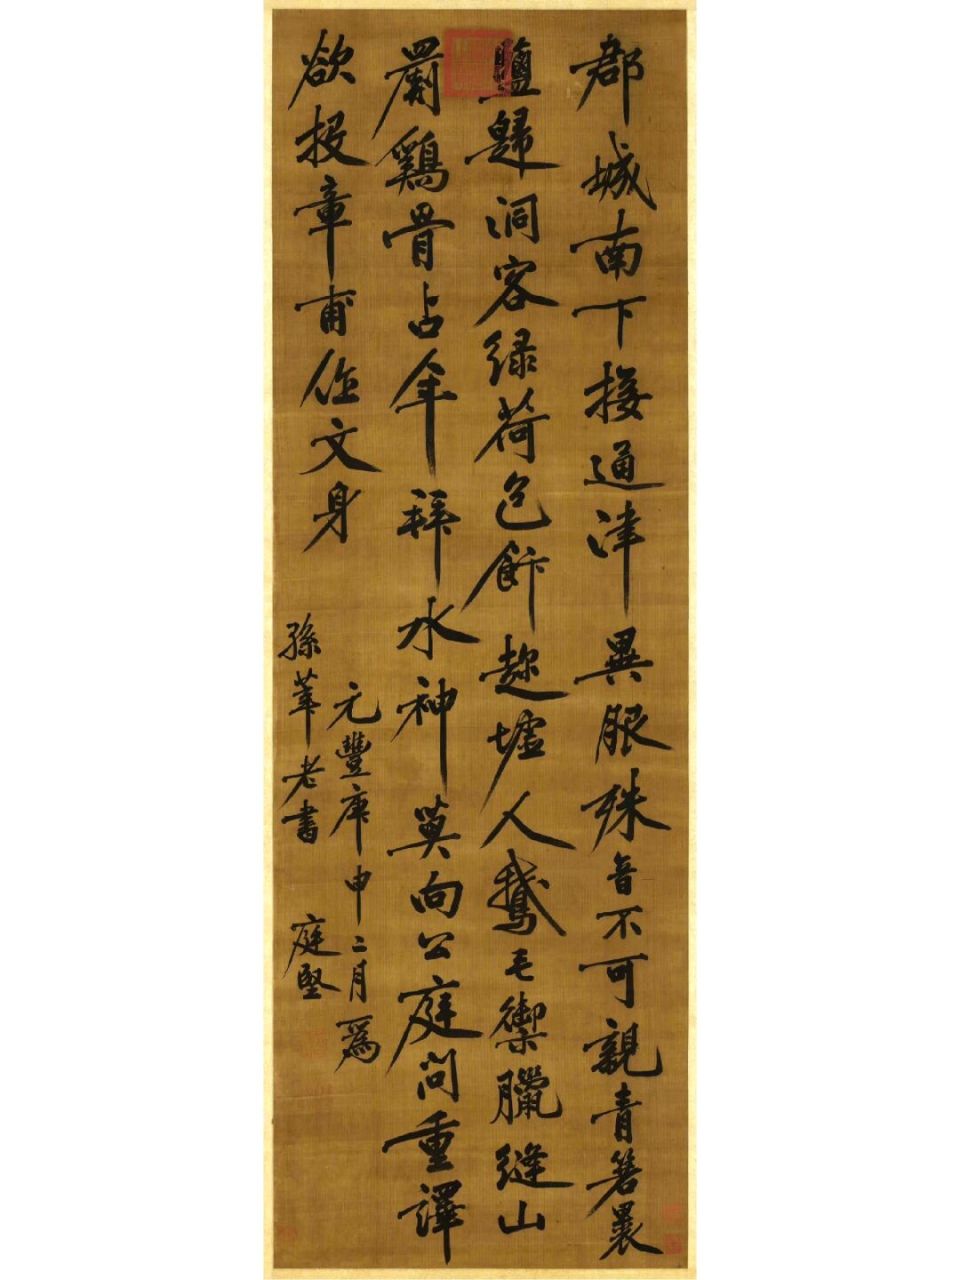 郡城南下接通津異服殊音不可親青箬裹
鹽歸洞客綠荷包飯趂墟人鵞毛禦臘縫山
罽鷄骨占年拜水神莫向公庭問重譯
欲投章甫作文身
元豐庚申二月爲
孫莘老書 庭堅